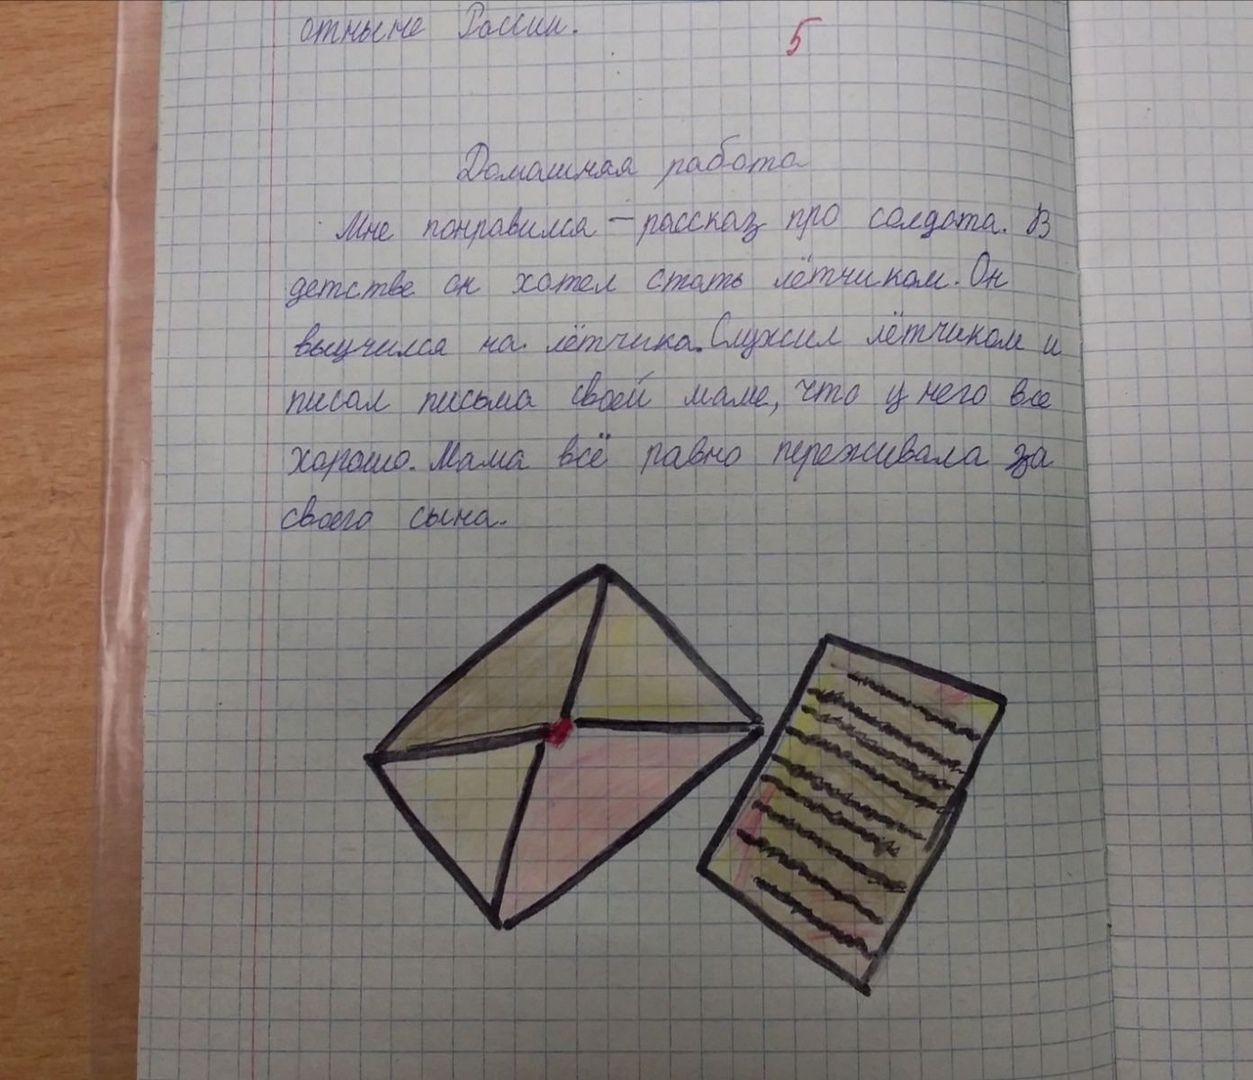 отныне России.
5
Домашная работа
Мне понравился – рассказ про солдата. В
детстве он хотел стать лётчиком. Он
выучился на лётчика. Служил лётчиком и
писал письма своей маме, что у него все
хорошо. Мама всё равно переживала за
своего сына.